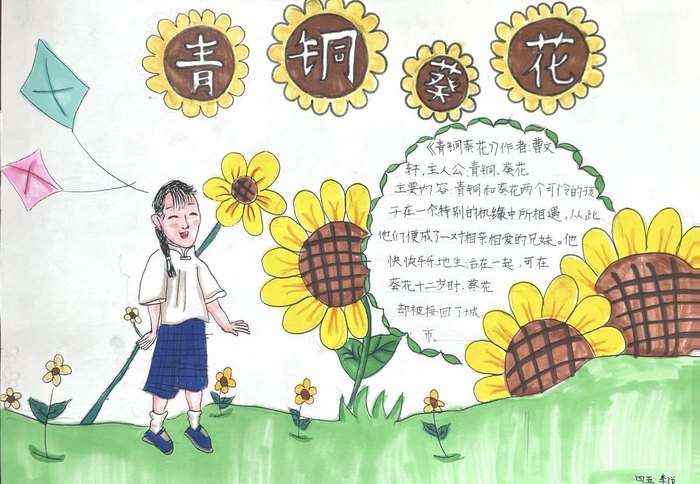 青铜葵花
《青铜葵花》作者:曹文
轩,主人公:青铜、葵花
主要内容:青铜和葵花两个可怜的孩
子在一个特别的机缘中所相遇,从此
他们便成了一对相亲相爱的兄妹。他
快快乐乐地生活在一起,可在
葵花十二岁时,葵花
却被接回了城
市。
四五